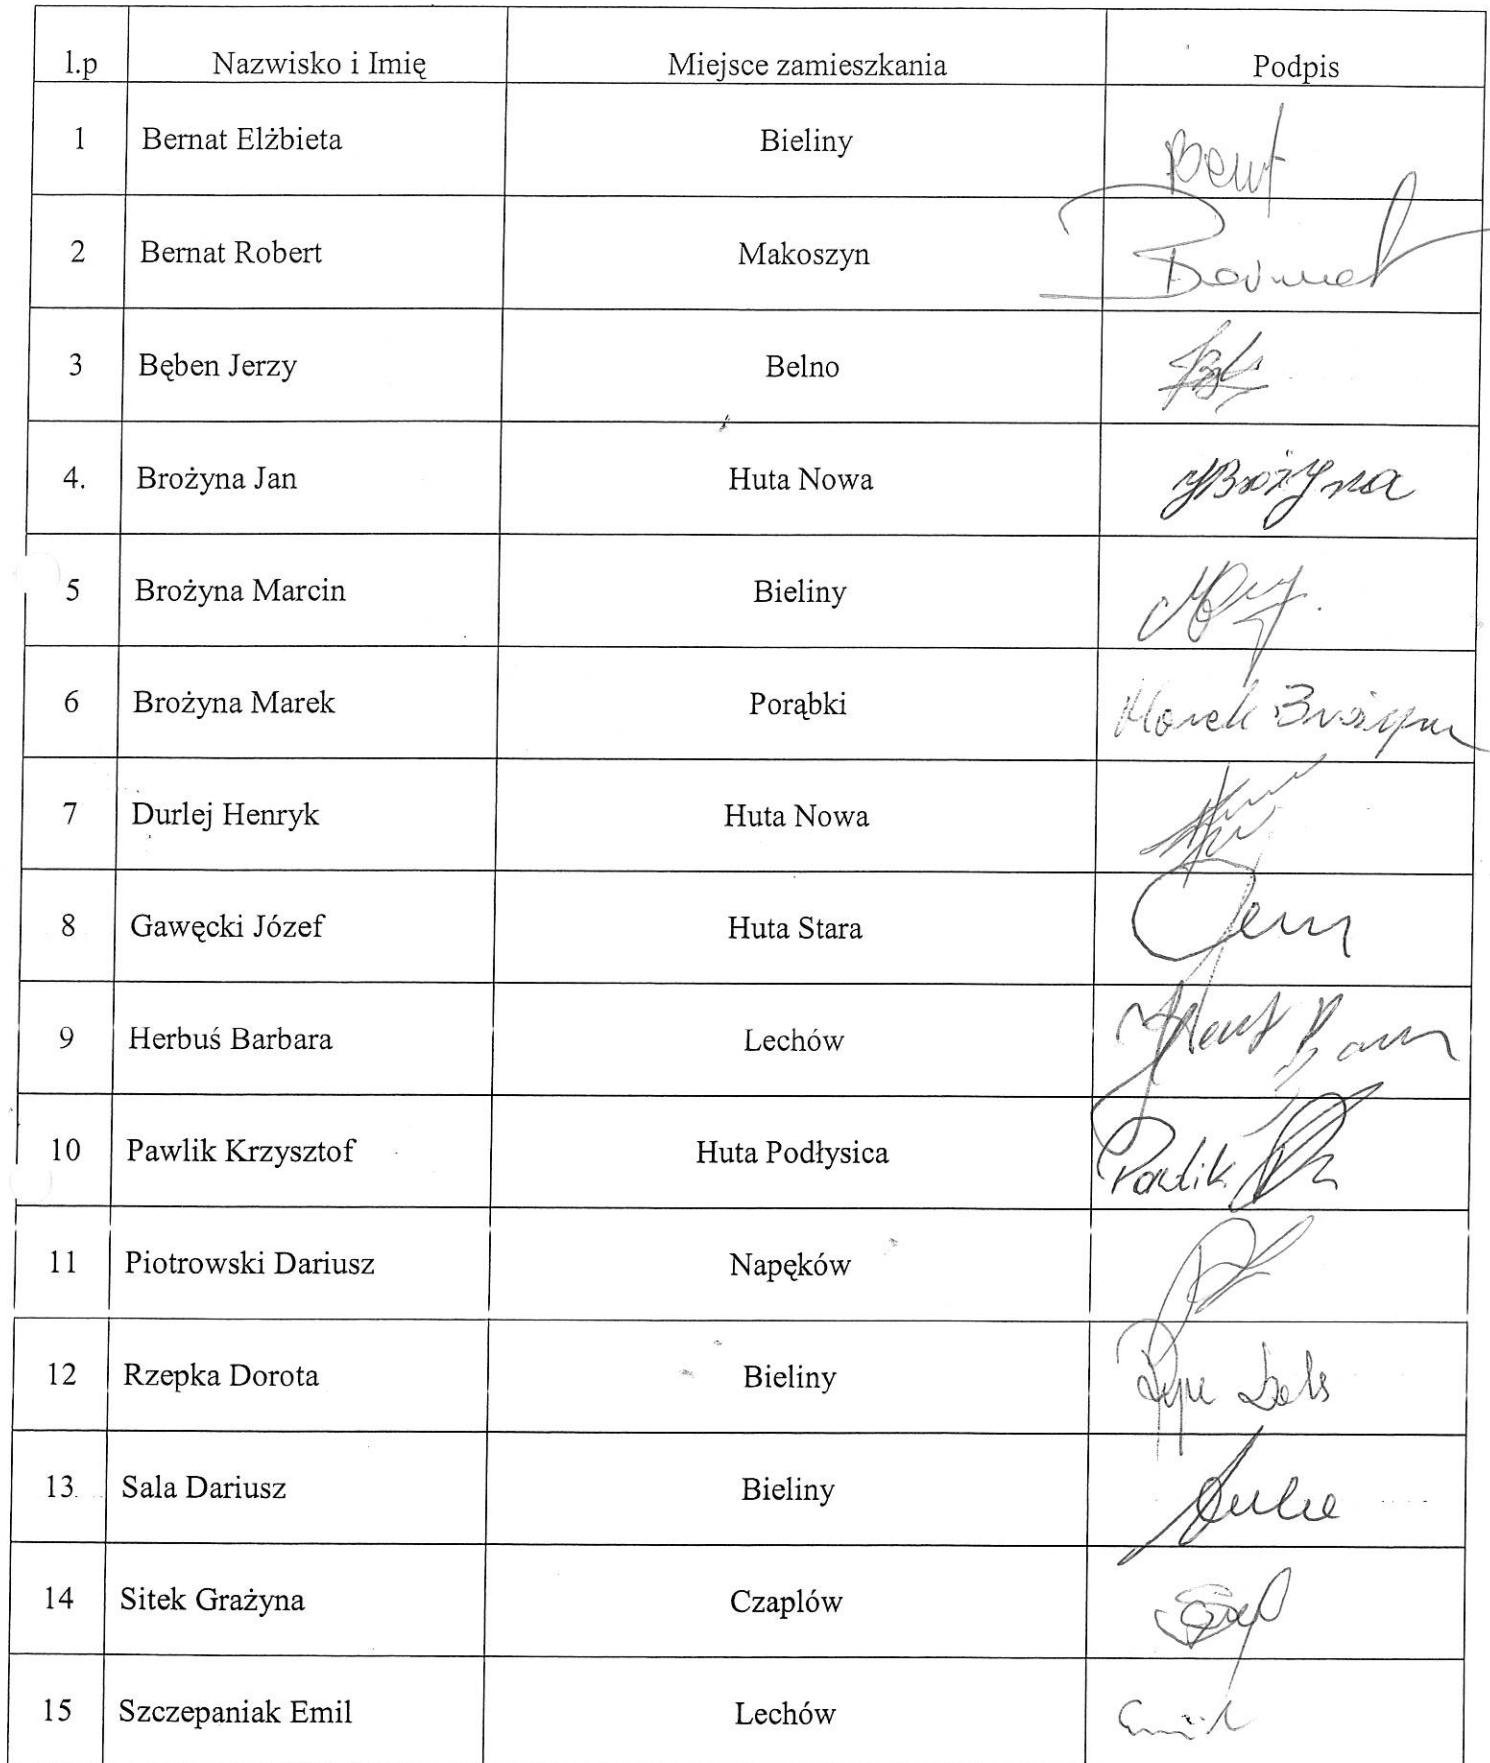 l.p Nazwisko i Imię Miejsce zamieszkania Podpis
1 Bernat Elżbieta Bieliny
2 Bernat Robert Makoszyn Bernat
3 Bęben Jerzy Belno
4. Brożyna Jan Huta Nowa JBrożyna
5 Brożyna Marcin Bieliny
6 Brożyna Marek Porąbki Marek Brożyna
7 Durlej Henryk Huta Nowa
8 Gawęcki Józef Huta Stara
9 Herbuś Barbara Lechów
10 Pawlik Krzysztof Huta Podłysica Pawlik
11 Piotrowski Dariusz Napęków
12 Rzepka Dorota Bieliny
13 Sala Dariusz Bieliny
14 Sitek Grażyna Czaplów
15 Szczepaniak Emil Lechów Emil